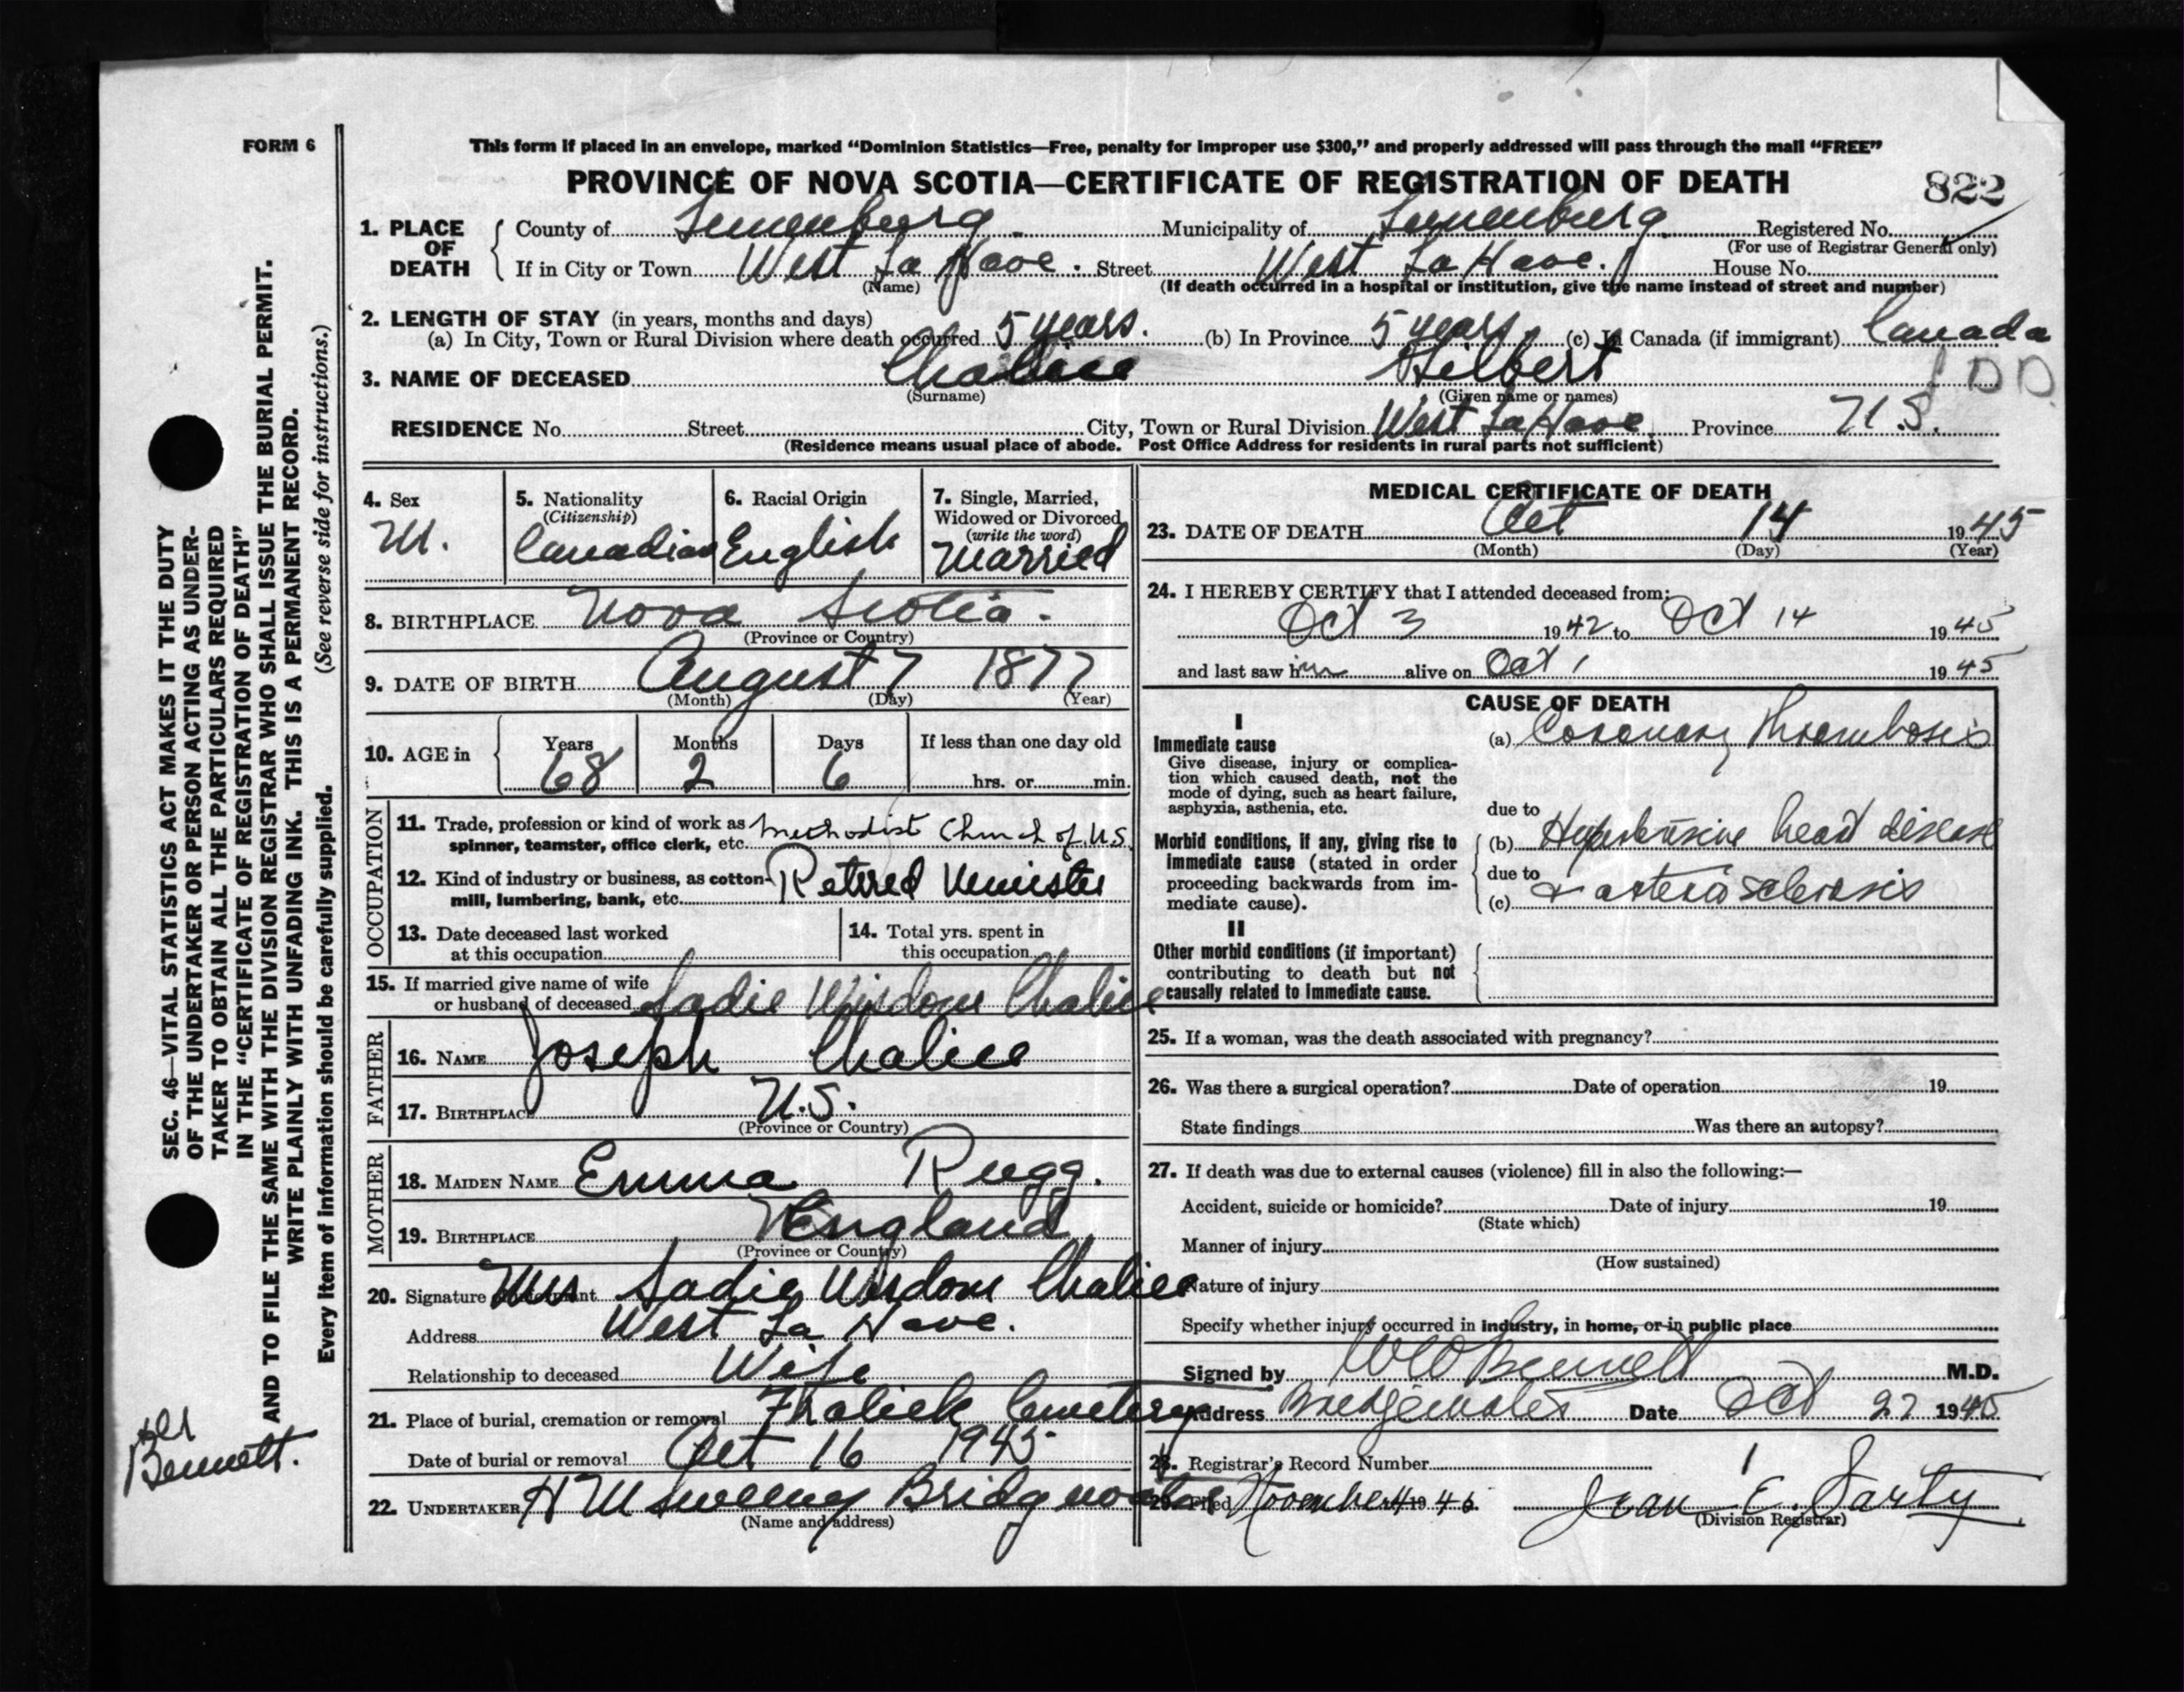 FORM 6
This form if placed in an envelope, marked “Dominion Statistics—Free, penalty for improper use $300,” and properly addressed will pass through the mail “FREE”
PROVINCE OF NOVA SCOTIA—CERTIFICATE OF REGISTRATION OF DEATH
822
1. PLACE OF DEATH County of Lunenburg Municipality of Lunenburg Registered No.
(For use of Registrar General only)
If in City or Town West La Have. Street West La Have. House No.
(Name) (If death occurred in a hospital or institution, give the name instead of street and number)
2. LENGTH OF STAY (in years, months and days)
(a) In City, Town or Rural Division where death occurred 5 years. (b) In Province 5 years. (c) In Canada (if immigrant) Canada
3. NAME OF DECEASED Chalice Hilbert
(Surname) (Given name or names)
RESIDENCE No. Street City, Town or Rural Division West La Have Province N.S.
(Residence means usual place of abode. Post Office Address for residents in rural parts not sufficient)
4. Sex
M.
5. Nationality
(Citizenship)
Canadian
6. Racial Origin
English
7. Single, Married,
Widowed or Divorced
(write the word)
Married
8. BIRTHPLACE Nova Scotia.
(Province or Country)
9. DATE OF BIRTH August 7 1877
(Month) (Day) (Year)
10. AGE in Years Months Days If less than one day old
68 2 6 hrs. or min.
OCCUPATION
11. Trade, profession or kind of work as spinner, teamster, office clerk, etc. Methodist Church of U.S.
12. Kind of industry or business, as cotton-mill, lumbering, bank, etc. Retired Minister
13. Date deceased last worked at this occupation
14. Total yrs. spent in this occupation
15. If married give name of wife or husband of deceased Sadie Wisdom Chalice
FATHER
16. NAME Joseph Chalice
17. BIRTHPLACE N.S.
(Province or Country)
MOTHER
18. MAIDEN NAME Emma Rugg.
19. BIRTHPLACE England
(Province or Country)
20. Signature of informant Mrs Sadie Wisdom Chalice
Address West La Have.
Relationship to deceased Wife
21. Place of burial, cremation or removal Fralick Cemetery
Date of burial or removal Oct 16 1945
22. UNDERTAKER H M Sweeny Bridgewater
(Name and address)
MEDICAL CERTIFICATE OF DEATH
23. DATE OF DEATH Oct 14 1945
(Month) (Day) (Year)
24. I HEREBY CERTIFY that I attended deceased from:
Oct 3 1942 to Oct 14 1945
and last saw him alive on Oct 1 1945
CAUSE OF DEATH
I
Immediate cause
Give disease, injury or complica-
tion which caused death, not the
mode of dying, such as heart failure,
asphyxia, asthenia, etc.
(a) Coronary Thrombosis
due to
Morbid conditions, if any, giving rise to
immediate cause (stated in order
proceeding backwards from im-
mediate cause).
(b) Hypertensive heart disease
due to
(c) & arterio sclerosis
II
Other morbid conditions (if important)
contributing to death but not
causally related to immediate cause.
25. If a woman, was the death associated with pregnancy?
26. Was there a surgical operation? Date of operation 19
State findings Was there an autopsy?
27. If death was due to external causes (violence) fill in also the following:—
Accident, suicide or homicide? Date of injury 19
(State which)
Manner of injury
(How sustained)
Nature of injury
Specify whether injury occurred in industry, in home, or in public place
Signed by W O Bennett M.D.
Address Bridgewater Date Oct 27 1945
28. Registrar's Record Number 1
29. Filed November 1945 Jean E. Sarty
(Division Registrar)
SEC. 46—VITAL STATISTICS ACT MAKES IT THE DUTY
OF THE UNDERTAKER OR PERSON ACTING AS UNDER-
TAKER TO OBTAIN ALL THE PARTICULARS REQUIRED
IN THE “CERTIFICATE OF REGISTRATION OF DEATH”
AND TO FILE THE SAME WITH THE DIVISION REGISTRAR WHO SHALL ISSUE THE BURIAL PERMIT.
WRITE PLAINLY WITH UNFADING INK. THIS IS A PERMANENT RECORD.
Every item of information should be carefully supplied. (See reverse side for instructions.)
Bennett.